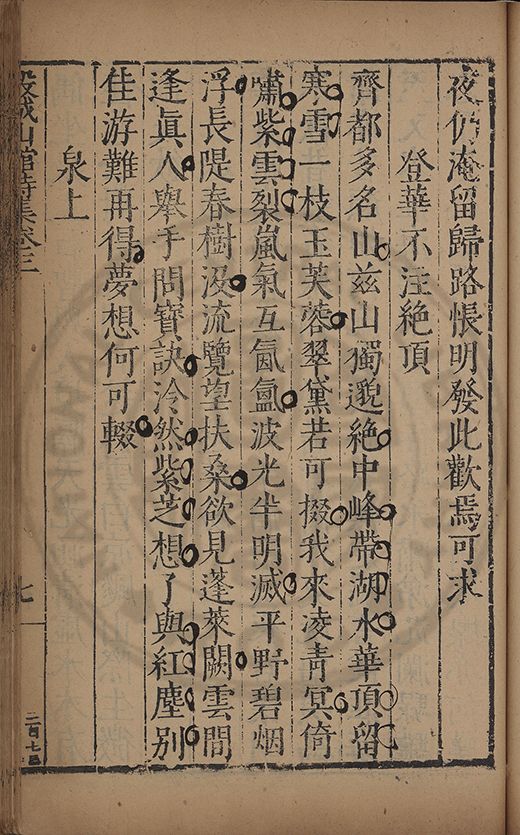 夜仍淹留歸路悵明發此歡焉可求
登華不注絕頂
齊都多名山兹山獨邈絕中峰帶湖水華頂留
寒雪一枝玉芙蓉翠黛若可掇我來凌青冥倚
嘯紫雲裂嵐氣互氤氳波光半明滅平野碧烟
浮長隄春樹沒流覽望扶桑欲見蓬萊闕雲間
逢眞人舉手問寶訣泠然紫芝想了與紅塵別
佳游難再得夢想何可輟
泉上
穀城山館詩集卷三
七
二百七